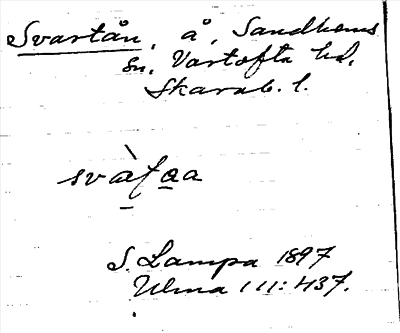 Svartån, å, Sandhems
sn. Vartofta hd.
Skarab. l.
S. Lampa 1897
Ulma 111:437.